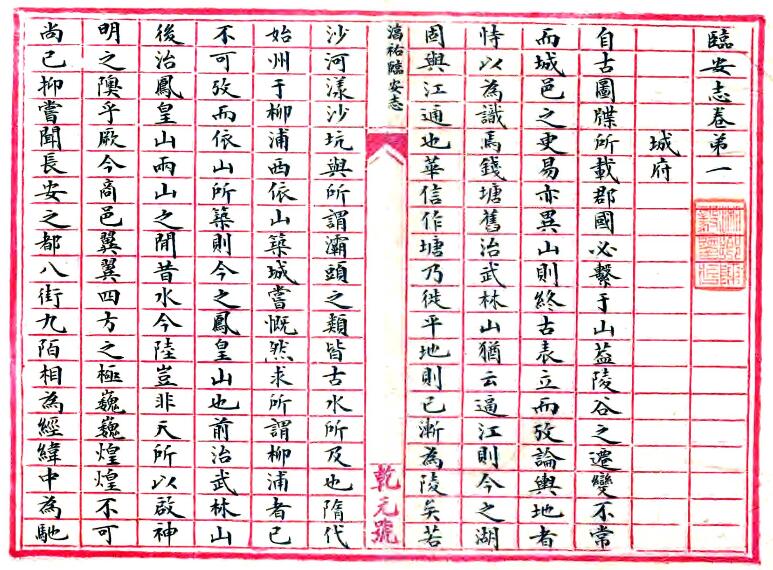 臨安志卷第一
城府
自古圖牒所載郡國必繫于山葢陵谷之遷變不常
而城邑之更易亦異山則終古表立而攷論輿地者
恃以為識焉錢塘舊治武林山猶云逼江則今之湖
固與江通也華信作塘乃徙平地則已漸為陵矣若
淳祐臨安志
乾元號
沙河漾沙坑與所謂灞頭之類皆古水所及也隋代
始州于柳浦西依山築城嘗慨然求所謂柳浦者已
不可攷而依山所築則今之鳳皇山也前治武林山
後治鳳皇山兩山之間昔水今陸豈非天所以啟神
明之隩乎厥今商邑翼翼四方之極巍巍煌煌不可
尚已抑嘗聞長安之都八街九陌相為經緯中為馳